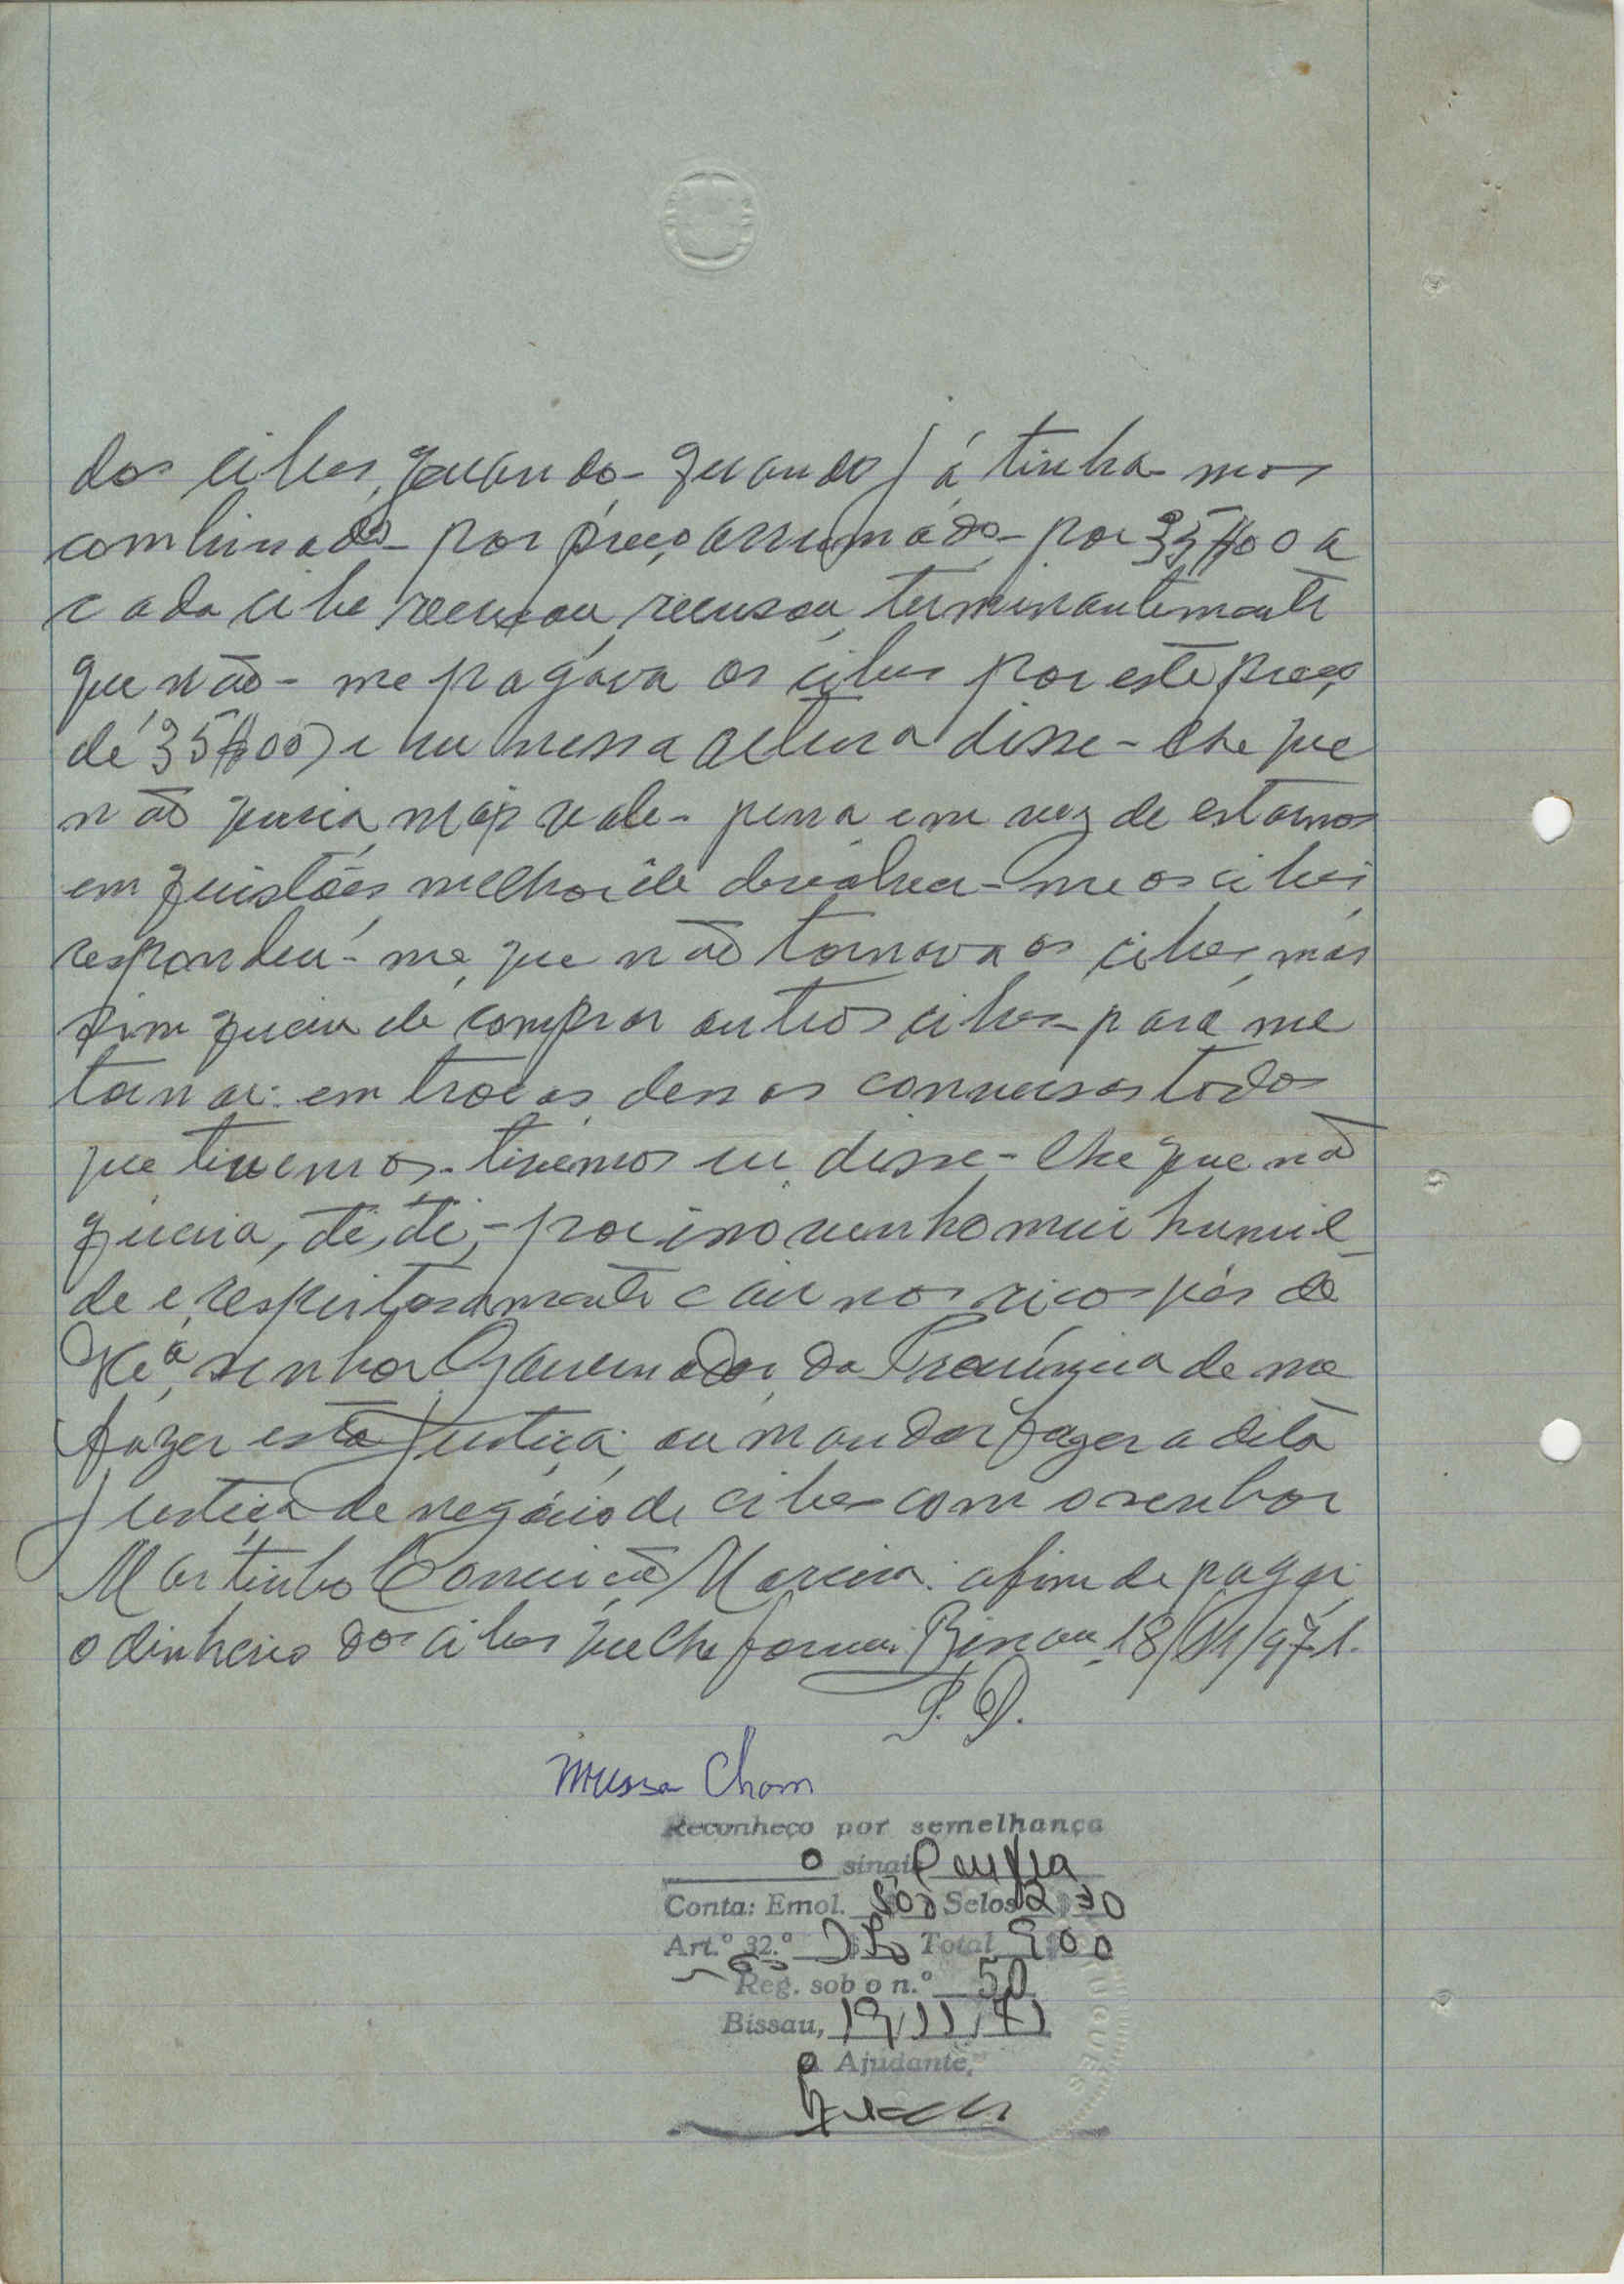 dos cibes, quando- quando já tinha-mos
combinado- por preço arrumádo- por 35$00 a
cada cibe recusou, recusou, terminantemente
que não- me pagáva os cibes por este preço
dé 35$00) e eu nessa altura disse- lhe que
não queria, mais vale- pena em vez de estarmos
em questões melhor ele devolver- me os cibes
respondeu- me, que não tornava os cibes, más
sim queria de comprar outros cibes- pará me
tornar: em trocas dessas conversas todas
que tivemos- tivémos eu disse- lhe que não
queria, ti, ti,- por isso venho mui humil-
de e respeitosamente cair nos ricos pés de
Vxª senhor Governador da Província de me
fazer esta Justiça: ou mandar fazer a dita
Justiça de negócio de cibes com o senhor
Martinho Conceição Moreira: afim de pagar
o dinheiro dos cibes que lhe forneci Bissau, 18/11/971.
P. D.
Mussa Cham
Reconheço por semelhança
o sinal supra
Conta: Emol. 5$00 Selos 2$30
Art.º 32.º Total 9$00
Reg. sob o n.º 50
Bissau, 19/11/71
O Ajudante,